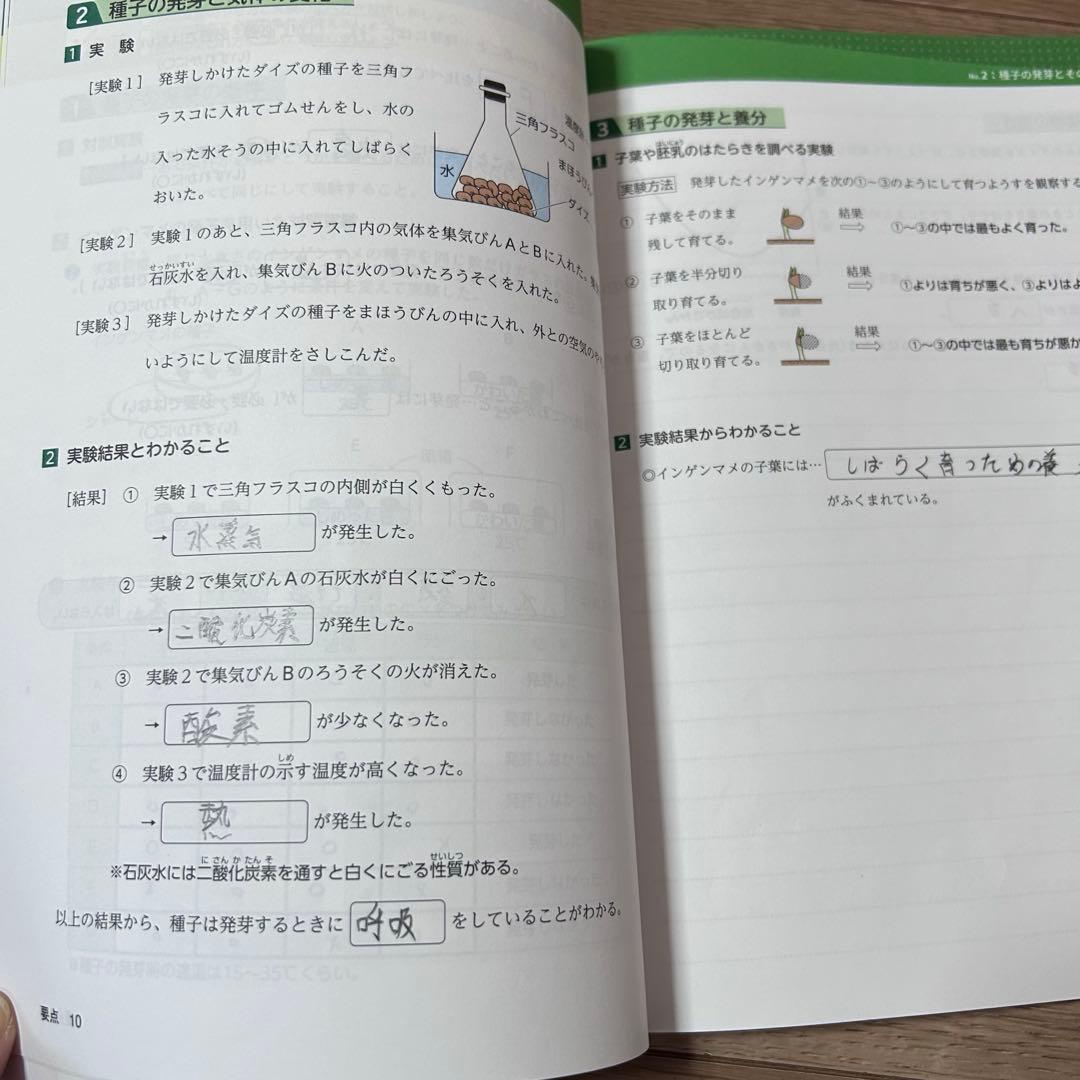 2 種子の発芽と気体の変化
1 実 験
[実験1] 発芽しかけたダイズの種子を三角フ
ラスコに入れてゴムせんをし、水の
入った水そうの中に入れてしばらく
おいた。
三角フラスコ
水
まほうびん
ダイズ
[実験2] 実験1のあと、三角フラスコ内の気体を集気びんAとBに入れた。
せっかいすい
石灰水を入れ、集気びんBに火のついたろうそくを入れた。
[実験3] 発芽しかけたダイズの種子をまほうびんの中に入れ、外との空気の
いようにして温度計をさしこんだ。
2 実験結果とわかること
[結果] ① 実験1で三角フラスコの内側が白くくもった。
→ 水蒸気 が発生した。
② 実験2で集気びんAの石灰水が白くにごった。
→ 二酸化炭素 が発生した。
③ 実験2で集気びんBのろうそくの火が消えた。
→ 酸素 が少なくなった。
しめ
④ 実験3で温度計の示す温度が高くなった。
→ 熱 が発生した。
にさんかたんそ せいしつ
※石灰水には二酸化炭素を通すと白くにごる性質がある。
以上の結果から、種子は発芽するときに 呼吸 をしていることがわかる。
要点 10
No.2:種子の発芽とその
3 種子の発芽と養分
はいにゅう
1 子葉や胚乳のはたらきを調べる実験
実験方法 発芽したインゲンマメを次の①～③のようにして育つようすを観察する
① 子葉をそのまま
残して育てる。
結果
⇨ ①～③の中では最もよく育った。
② 子葉を半分切り
取り育てる。
結果
⇨ ①よりは育ちが悪く、③よりはよ
③ 子葉をほとんど
切り取り育てる。
結果
⇨ ①～③の中では最も育ちが悪か
2 実験結果からわかること
◎インゲンマメの子葉には… しばらく育つための養
がふくまれている。